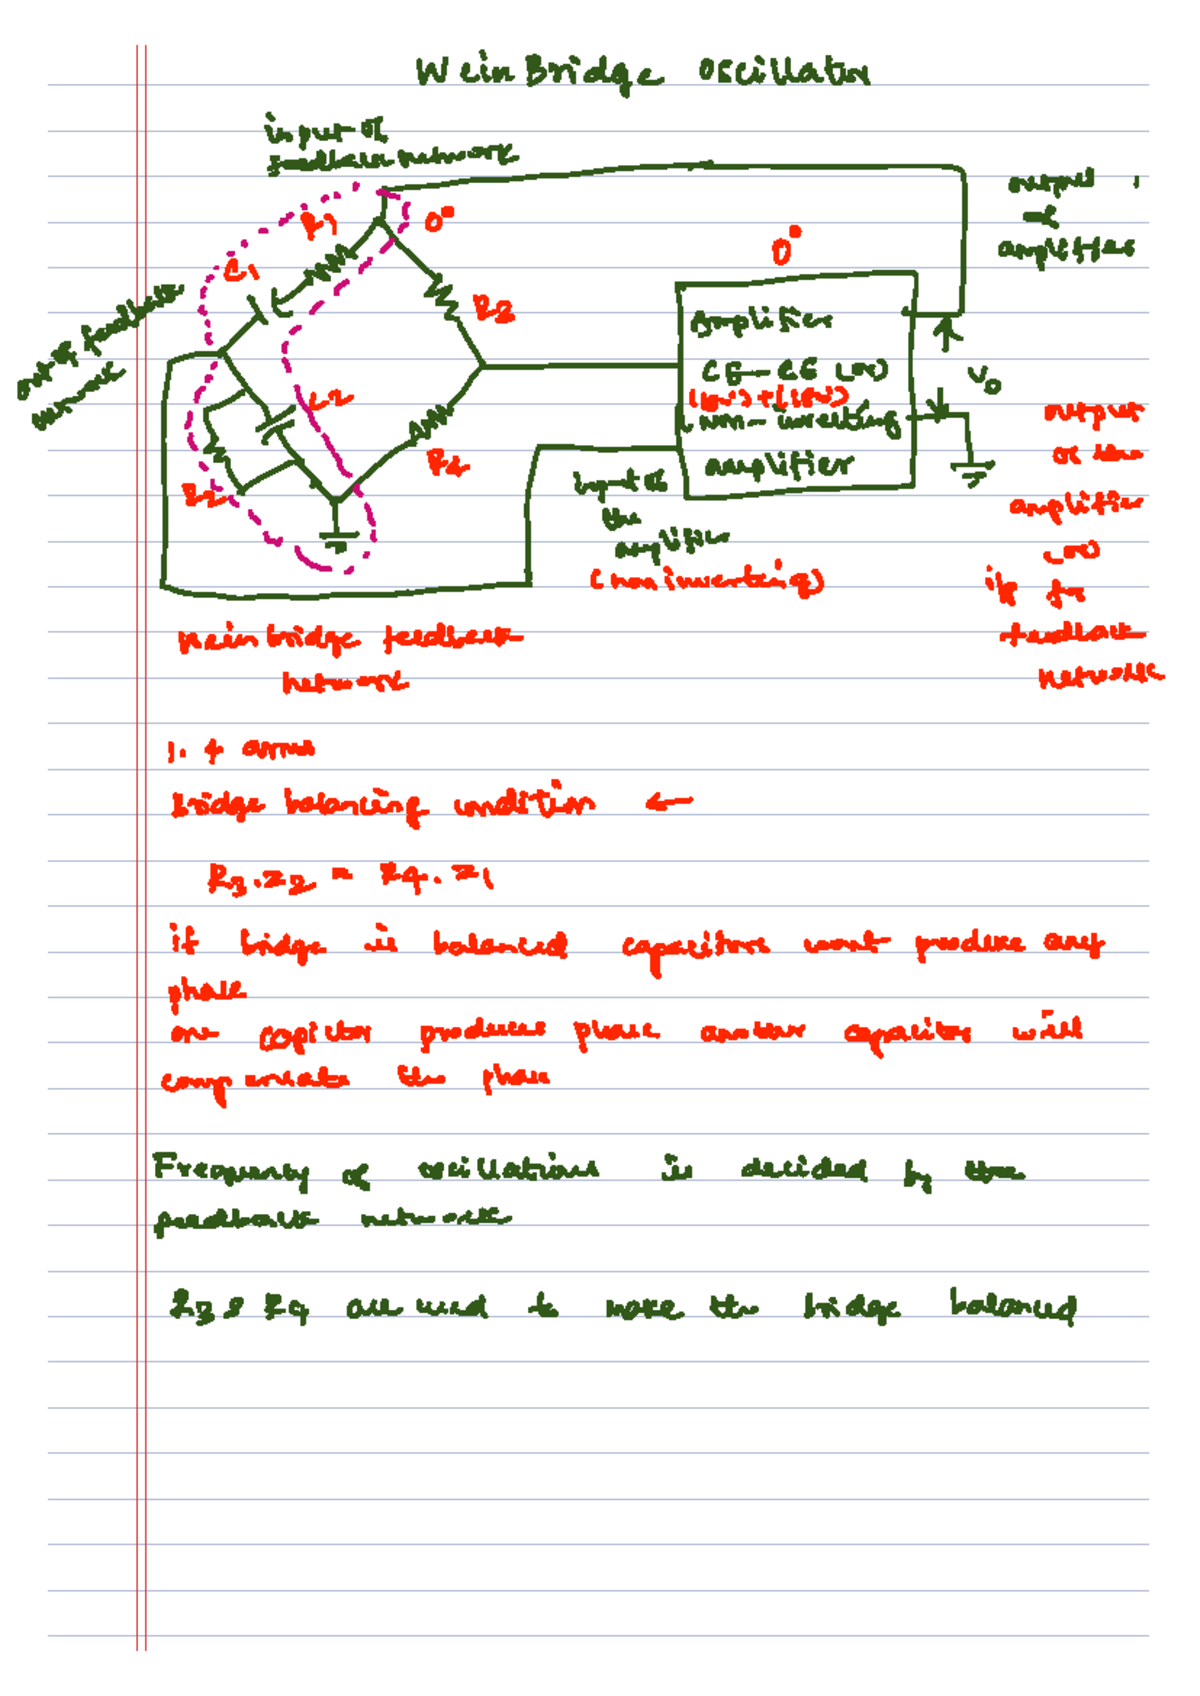 Wein Bridge Oscillator
input of
feedback network
output
of
amplifier
R1
0°
0°
C1
R3
out of feedback
network
Amplifier
CE-CE (or)
(180°)+(180°)
(non-inverting
amplifier
Vo
C2
R4
R2
input of
the
amplifier
(non inverting)
output
of the
amplifier
(or)
i/p for
feedback
network
Wein bridge feedback
network
1. 4 arms
Bridge balancing condition ←
R3.Z2 = R4.Z1
if bridge is balanced capacitors wont produce any
phase
one capictor produces phase another capacitor will
compensate the phase
Frequency of oscillations is decided by the
feedback network
R3 & R4 are used to make the bridge balanced